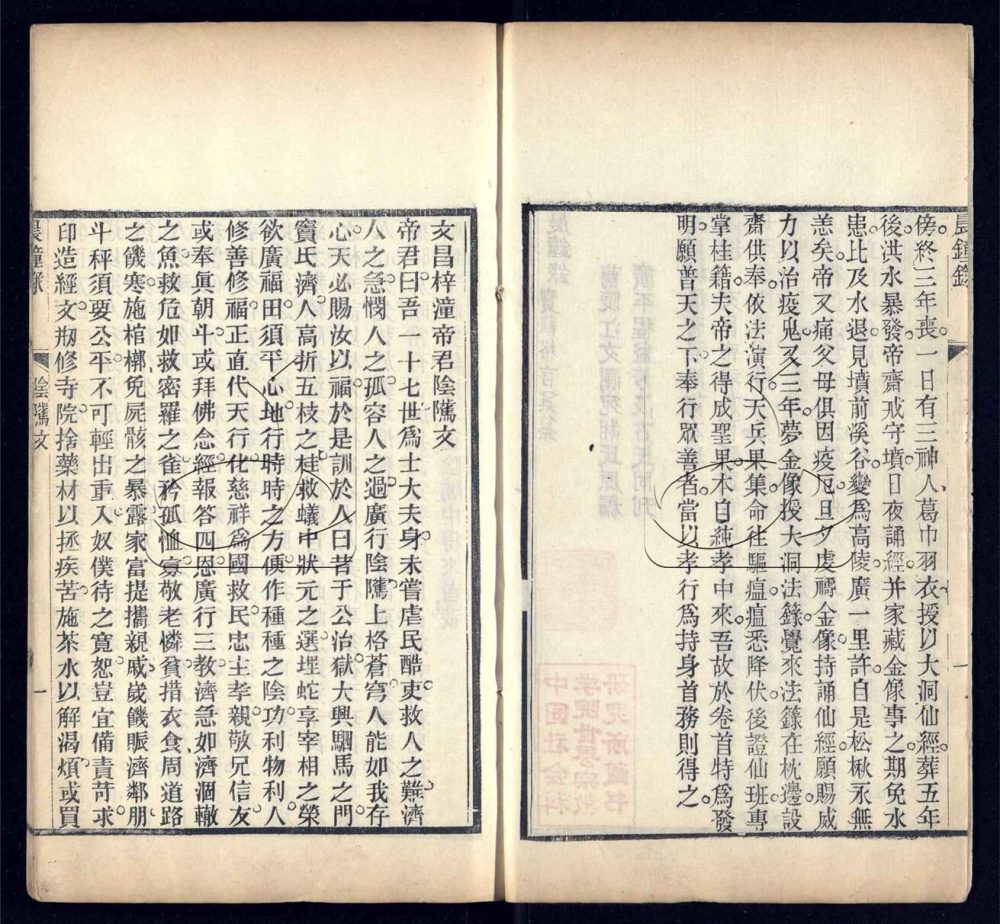 晨鐘錄
一
傍終三年喪。一日有三神人。葛巾羽衣。授以大洞仙經。葬五年
後。洪水暴發。帝齋戒守墳。日夜誦經。并家藏金像事之。期免水
患。比及水退。見墳前溪谷。變爲高陵。廣一里許。自是松楸永無
恙矣。帝又痛父母俱因疫厄。旦夕虔禱金像。持誦仙經。願賜威
力以治疫鬼。又三年。夢金像授大洞法籙。覺來法籙在枕邊。設
齋供奉。依法演行。天兵果集。命往驅瘟。瘟悉降伏。後證仙班。專
掌桂籍。夫帝之得成聖果。本自純孝中來。吾故於卷首特爲發
明。願普天之下。奉行眾善者。當以孝行爲持身首務則得之。
文昌梓潼帝君陰隲文
帝君曰。吾一十七世爲士大夫。身未嘗虐民酷吏。救人之難。濟
人之急。憫人之孤。容人之過。廣行陰隲。上格蒼穹。人能如我存
心。天必賜汝以福。於是訓於人曰。昔于公治獄。大興駟馬之門。
竇氏濟人。高折五枝之桂。救蟻中狀元之選。埋蛇享宰相之榮。
欲廣福田。須平心地。行時時之方便。作種種之陰功。利物利人。
修善修福。正直代天行化。慈祥爲國救民。忠主孝親。敬兄信友。
或奉眞朝斗。或拜佛念經。報答四恩。廣行三教。濟急如濟涸轍
之魚。救危如救密羅之雀。矜孤恤寡。敬老憐貧。措衣食周道路
之饑寒。施棺槨免屍骸之暴露。家富提攜親戚。歲饑賑濟鄰朋。
斗秤須要公平。不可輕出重入。奴僕待之寬恕。豈宜備責苛求。
印造經文。剏修寺院。捨藥材以拯疾苦。施茶水以解渴煩。或買
晨鐘錄
陰隲文
一